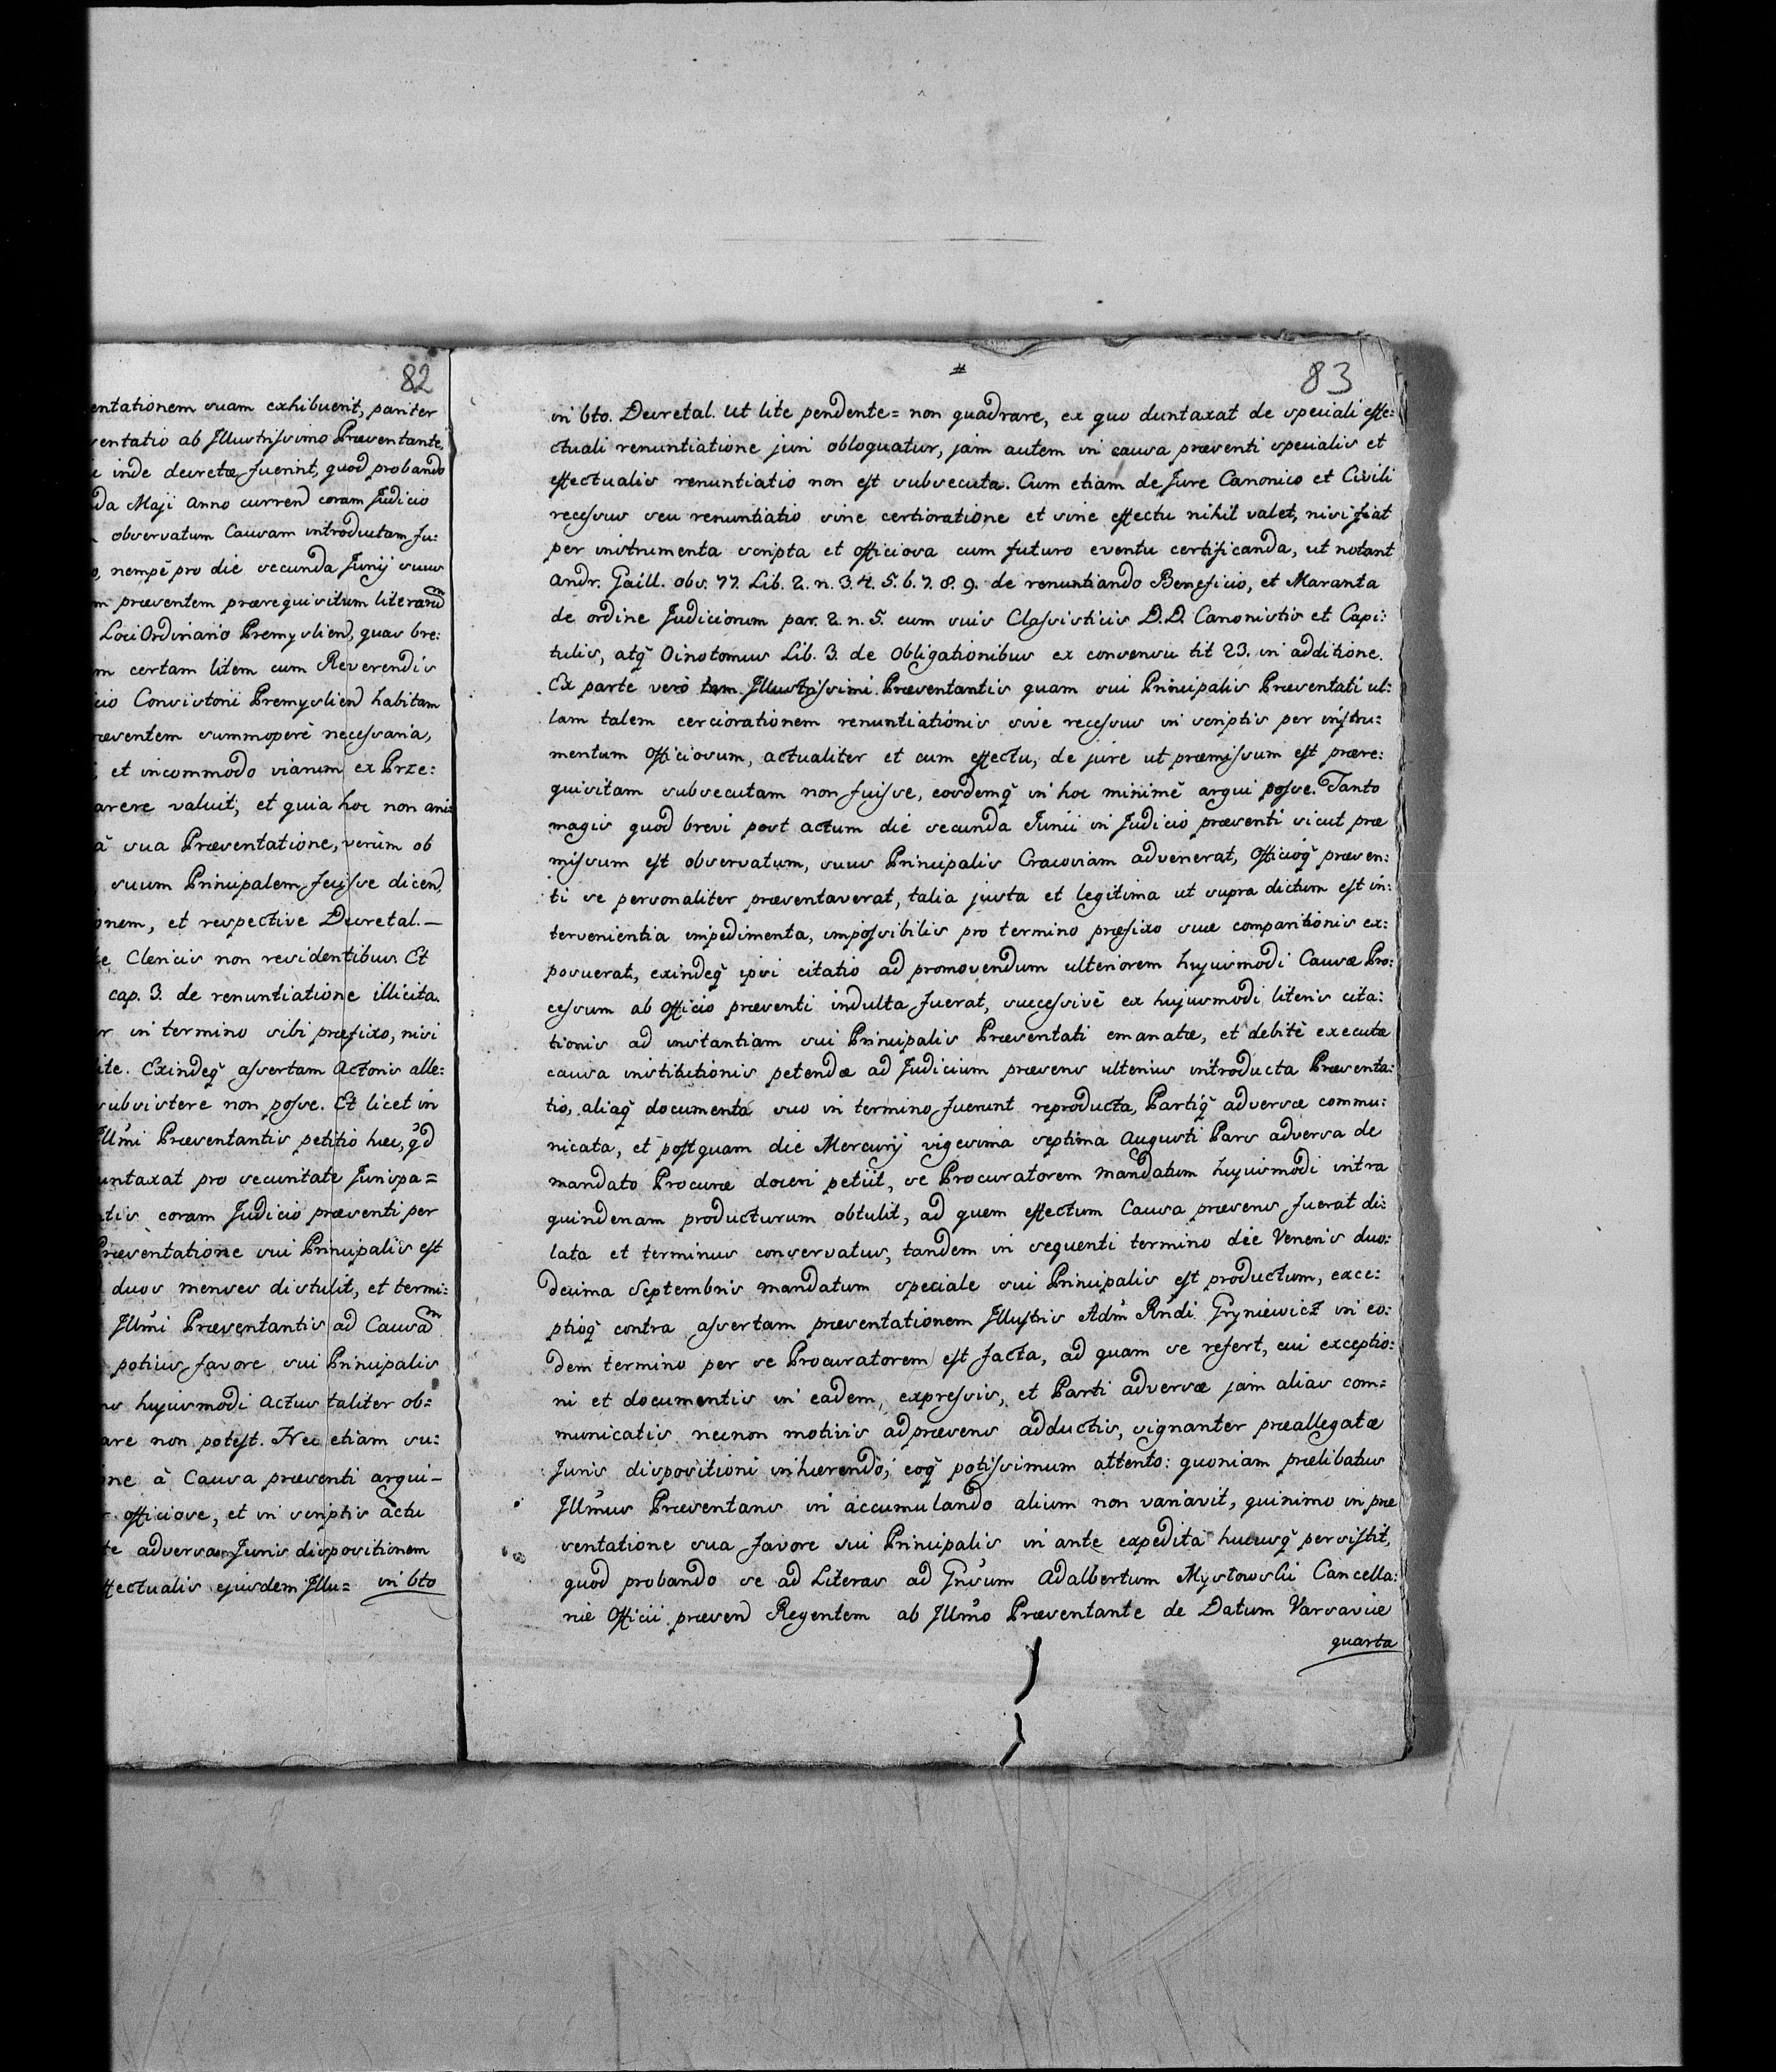 82
entationem suam exhibuerit, pariter
sentatio ab Illustrissimo Præsentante,
inde decretæ fuerint, quod probando
da Maji Anno currend coram Judicio
observatum Causam introductam fu:
nempè pro die secunda Junij suus
m præsentem prærequisitum literarum
Loci Ordinario Premyslien, quas bre:
m certam litem cum Reverendis
cio Consistorii Premyslien habitam
ræsentem summoperè necessaria,
et incommodo viarum ex Prze:
arere valuit, et quia hoc non ani:
à sua Præsentatione, verùm ob
suum Principalem fecisse dicend,
onem, et respective Decretal.—
Clericis non residentibus Et
cap. 3. de renuntiatione illicita.
r in termino sibi præfixo, nisi
ite. Exindeq̃ assertam Actoris alle:
subsistere non posse. Et licet in
Illm̃i Præsentantis petitio hæc, qd
untaxat pro securitate Jurispa=
tis coram Judicio præsenti per
Præsentatione sui Principalis est
duos menses distulit, et termi:
Illm̃i Præsentantis ad Causam
potius favore sui Principalis
ns hujusmodi actus taliter ob=
are non potest. Nec etiam su:
one à Causa præsenti argui—
officiose, et in scriptis actu
te adversam Juris dispositionem
ffectualis ejusdem Illu= in bto
83
in bto. Decretal. Ut lite pendente= non quadrare, ex quo duntaxat de speciali effe=
ctuali renuntiatione juri obloquatur, jam autem in causa præsenti specialis et
effectualis renuntiatio non est subsecuta. Cum etiam de Jure Canonico et Civili
recessus seu renuntiatio sine certioratione et sine effectu nihil valet, nisi fiat
per instrumenta scripta et officiosa cum futuro eventu certificanda, ut notant
Andr. Gaill. obs. 77. Lib. 2. n. 3. 4. 5. 6. 7. 8. 9. de renuntiando Beneficio, et Maranta
de ordine Judiciorum par. 2. n. 5. cum suis Classisticis D.D. Canonistis et Capi:
tulis, atq̃ Oinotomus Lib. 3. de Obligationibus ex consensu tit 23. in additione.
Ex parte verò tam Illustrissimi Præsentantis quam sui Principalis Præsentati ul:
lam talem cerciorationem renuntiationis sive recessus in scriptis per instru:
mentum Officiosum, actualiter et cum effectu, de jure ut præmissum est prære:
quisitam subsecutam non fuisse, eosdemq̃ in hoc minimè argui posse. Tanto
magis quod brevi post actum die secunda Junii in Judicio præsenti sicut præ
missum est observatum, suus Principalis Cracoviam advenerat, Officioq̃ præsen:
ti se personaliter præsentaverat, talia justa et legitima ut supra dictum est in:
tervenientia impedimenta, impossibilis pro termino præfixo suæ comparitionis ex:
posuerat, exindeq̃ ipsi citatio ad promovendum ulteriorem hujusmodi Causæ Pro:
cessum ab Officio præsenti indulta fuerat, successivè ex hujusmodi literis cita:
tionis ad instantiam sui Principalis Præsentati emanatæ, et debitè executæ
causa institutionis petendæ ad Judicium præsens ulterius introducta Præsenta:
tio, aliaq̃ documenta suo in termino fuerunt reproducta, Partiq̃ adversæ commu:
nicata, et postquam die Mercurij vigesima septima Augusti Pars adversa de
mandato Procuræ doceri petiit, se Procuratorem mandatum hujusmodi intra
quindenam producturum obtulit, ad quem effectum Causa præsens fuerat di:
lata et terminus conservatus, tandem in sequenti termino die Veneris duo:
decima Septembris mandatum speciale sui Principalis est productum, exce:
ptioq̃ contra assertam præsentationem Illustris Adm̃ Rñdi Gryniewicz in eo:
dem termino per se Procuratorem est facta, ad quam se refert, cui exceptio:
ni et documentis in eadem, expressis, et Parti adversæ jam alias com=
municatis necnon motivis ad præsens adductis, signanter præallegatæ
Juris dispositioni inhærendo, eoq̃ potissimum attento: quoniam prælibatus
Illm̃us Præsentans in accumulando alium non variavit, quinimo in præ
sentatione sua favore sui Principalis in ante expedita hucusq̃ persistit,
quod probando se ad Literas ad Gñsum Adalbertum Mystowski Cancella:
riæ Officii præsen Regentem ab Illm̃o Præsentante de Datum Varsaviæ
quarta